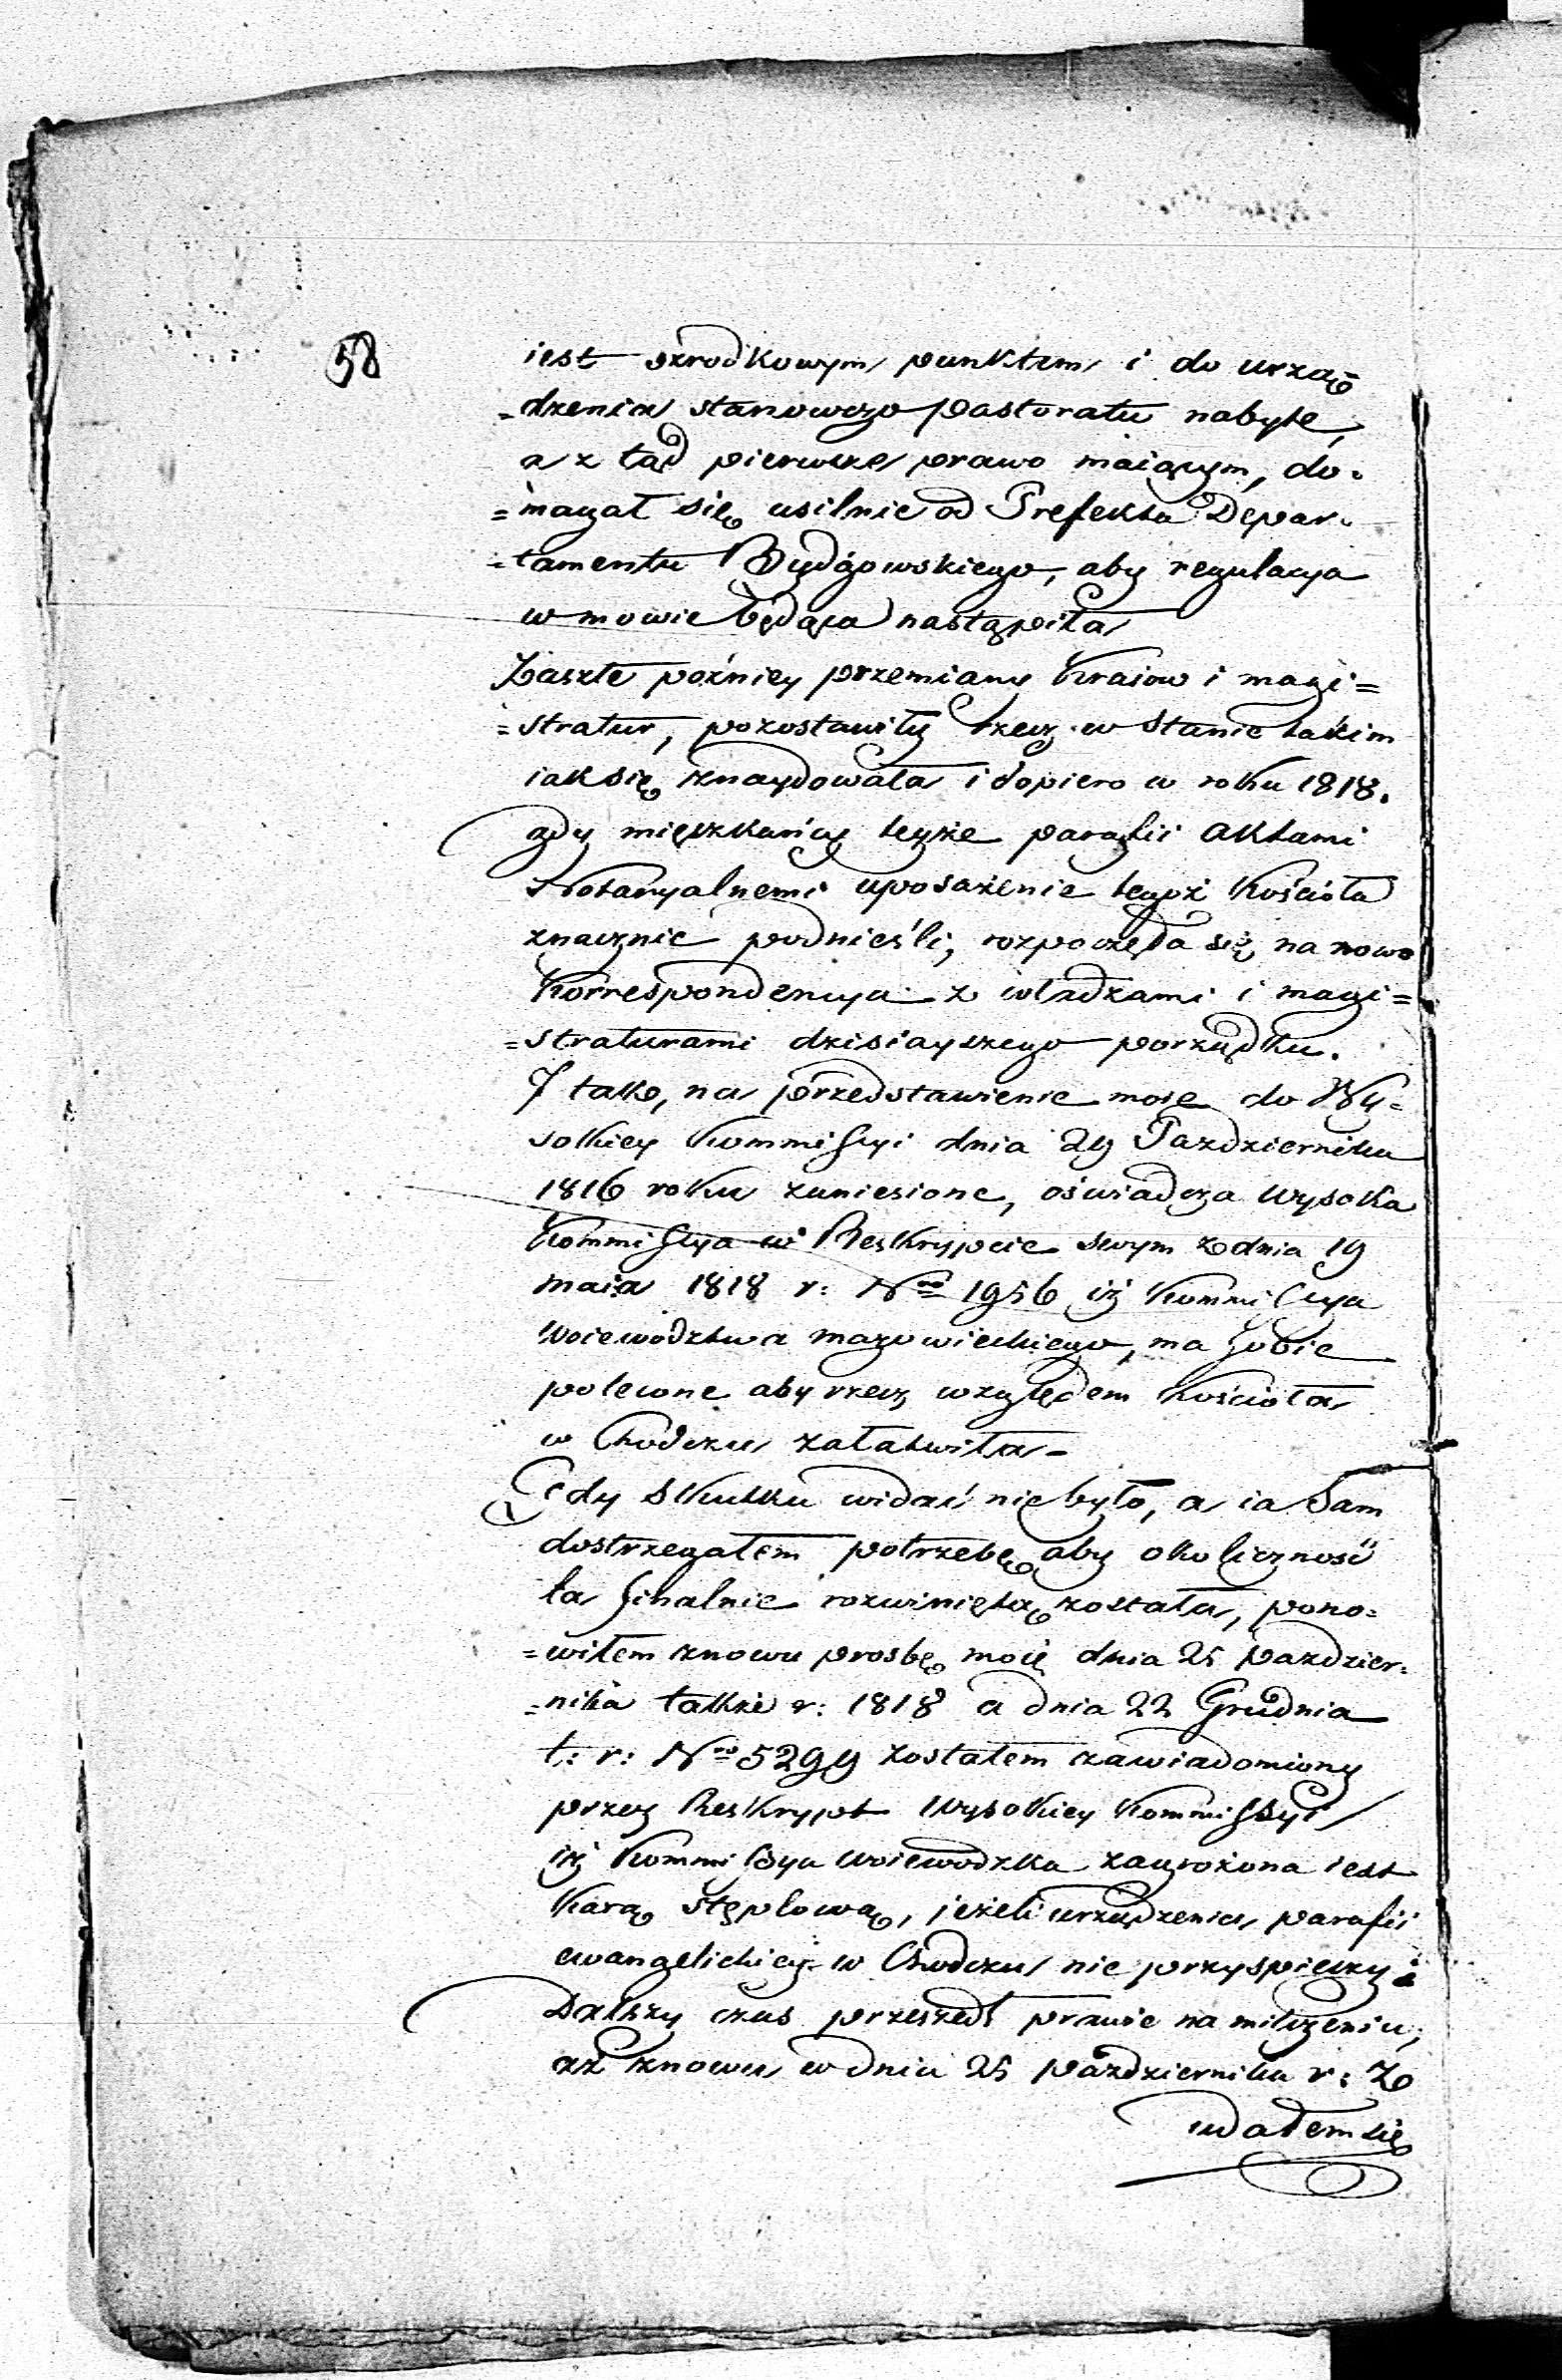 58
iest szrodkowym punktem i do urzą=
=dzenia stanowczo Pastoratu nabyte,
a z tąd pierwsze prawo maiącym, do=
=magał się usilnie od Prefekta Depar=
=tamentu Bydgowskiego, aby regulacya
w mowie będąca nastąpiła
Zaszłe poźniey przemiany Kraiow i magi=
=stratur, pozostawiły rzecz w Stanie takim
iak się znaydowała i dopiero w roku 1818.
gdy mięszkańcy teyże parafii aktami
Notaryalnemi uposażenie tegoż Kościoła
znacznie podnieśli, rozpoczęła się na nowo
Korrespondencya z władzami i magi=
=straturami dzisiayszego porządku.
I tak, na przedstawienie moie do Wy=
sokiey Kommissyi dnia 29 Pazdziernika
1816 roku zaniesione, oświadcza Wysoka
Kommissya w Reskrypcie swym z dnia 19
maia 1818 r: Nro 1956 iż Kommissya
Woiewodztwa mazowieckiego, ma sobie
polecone aby rzecz względem Kościoła
w Chodczu załatwiła=
Gdy Skutku widać nie było, a ia Sam
dostrzegałem potrzebę aby okoliczność
ta finalnie rozwiniętą została, pono=
=wiłem znowu prosbę moię dnia 25 pazdzier=
=nika także r: 1818 a dnia 22 Grudnia
t: r: Nro 5299 zostałem zawiadomiony
przez Reskrypt Wysokiey Kommissyi
iż Kommissya Woiewodzka zagrożona iest
Karą stęplową, jeżeli urządzenia parafii
ewangelickiey w Chodczu nie przyspieszy.
Dalszy czas przeszedł prawie na milczeniu,
aż znowu w dniu 25 pazdziernika r: z
udałem się